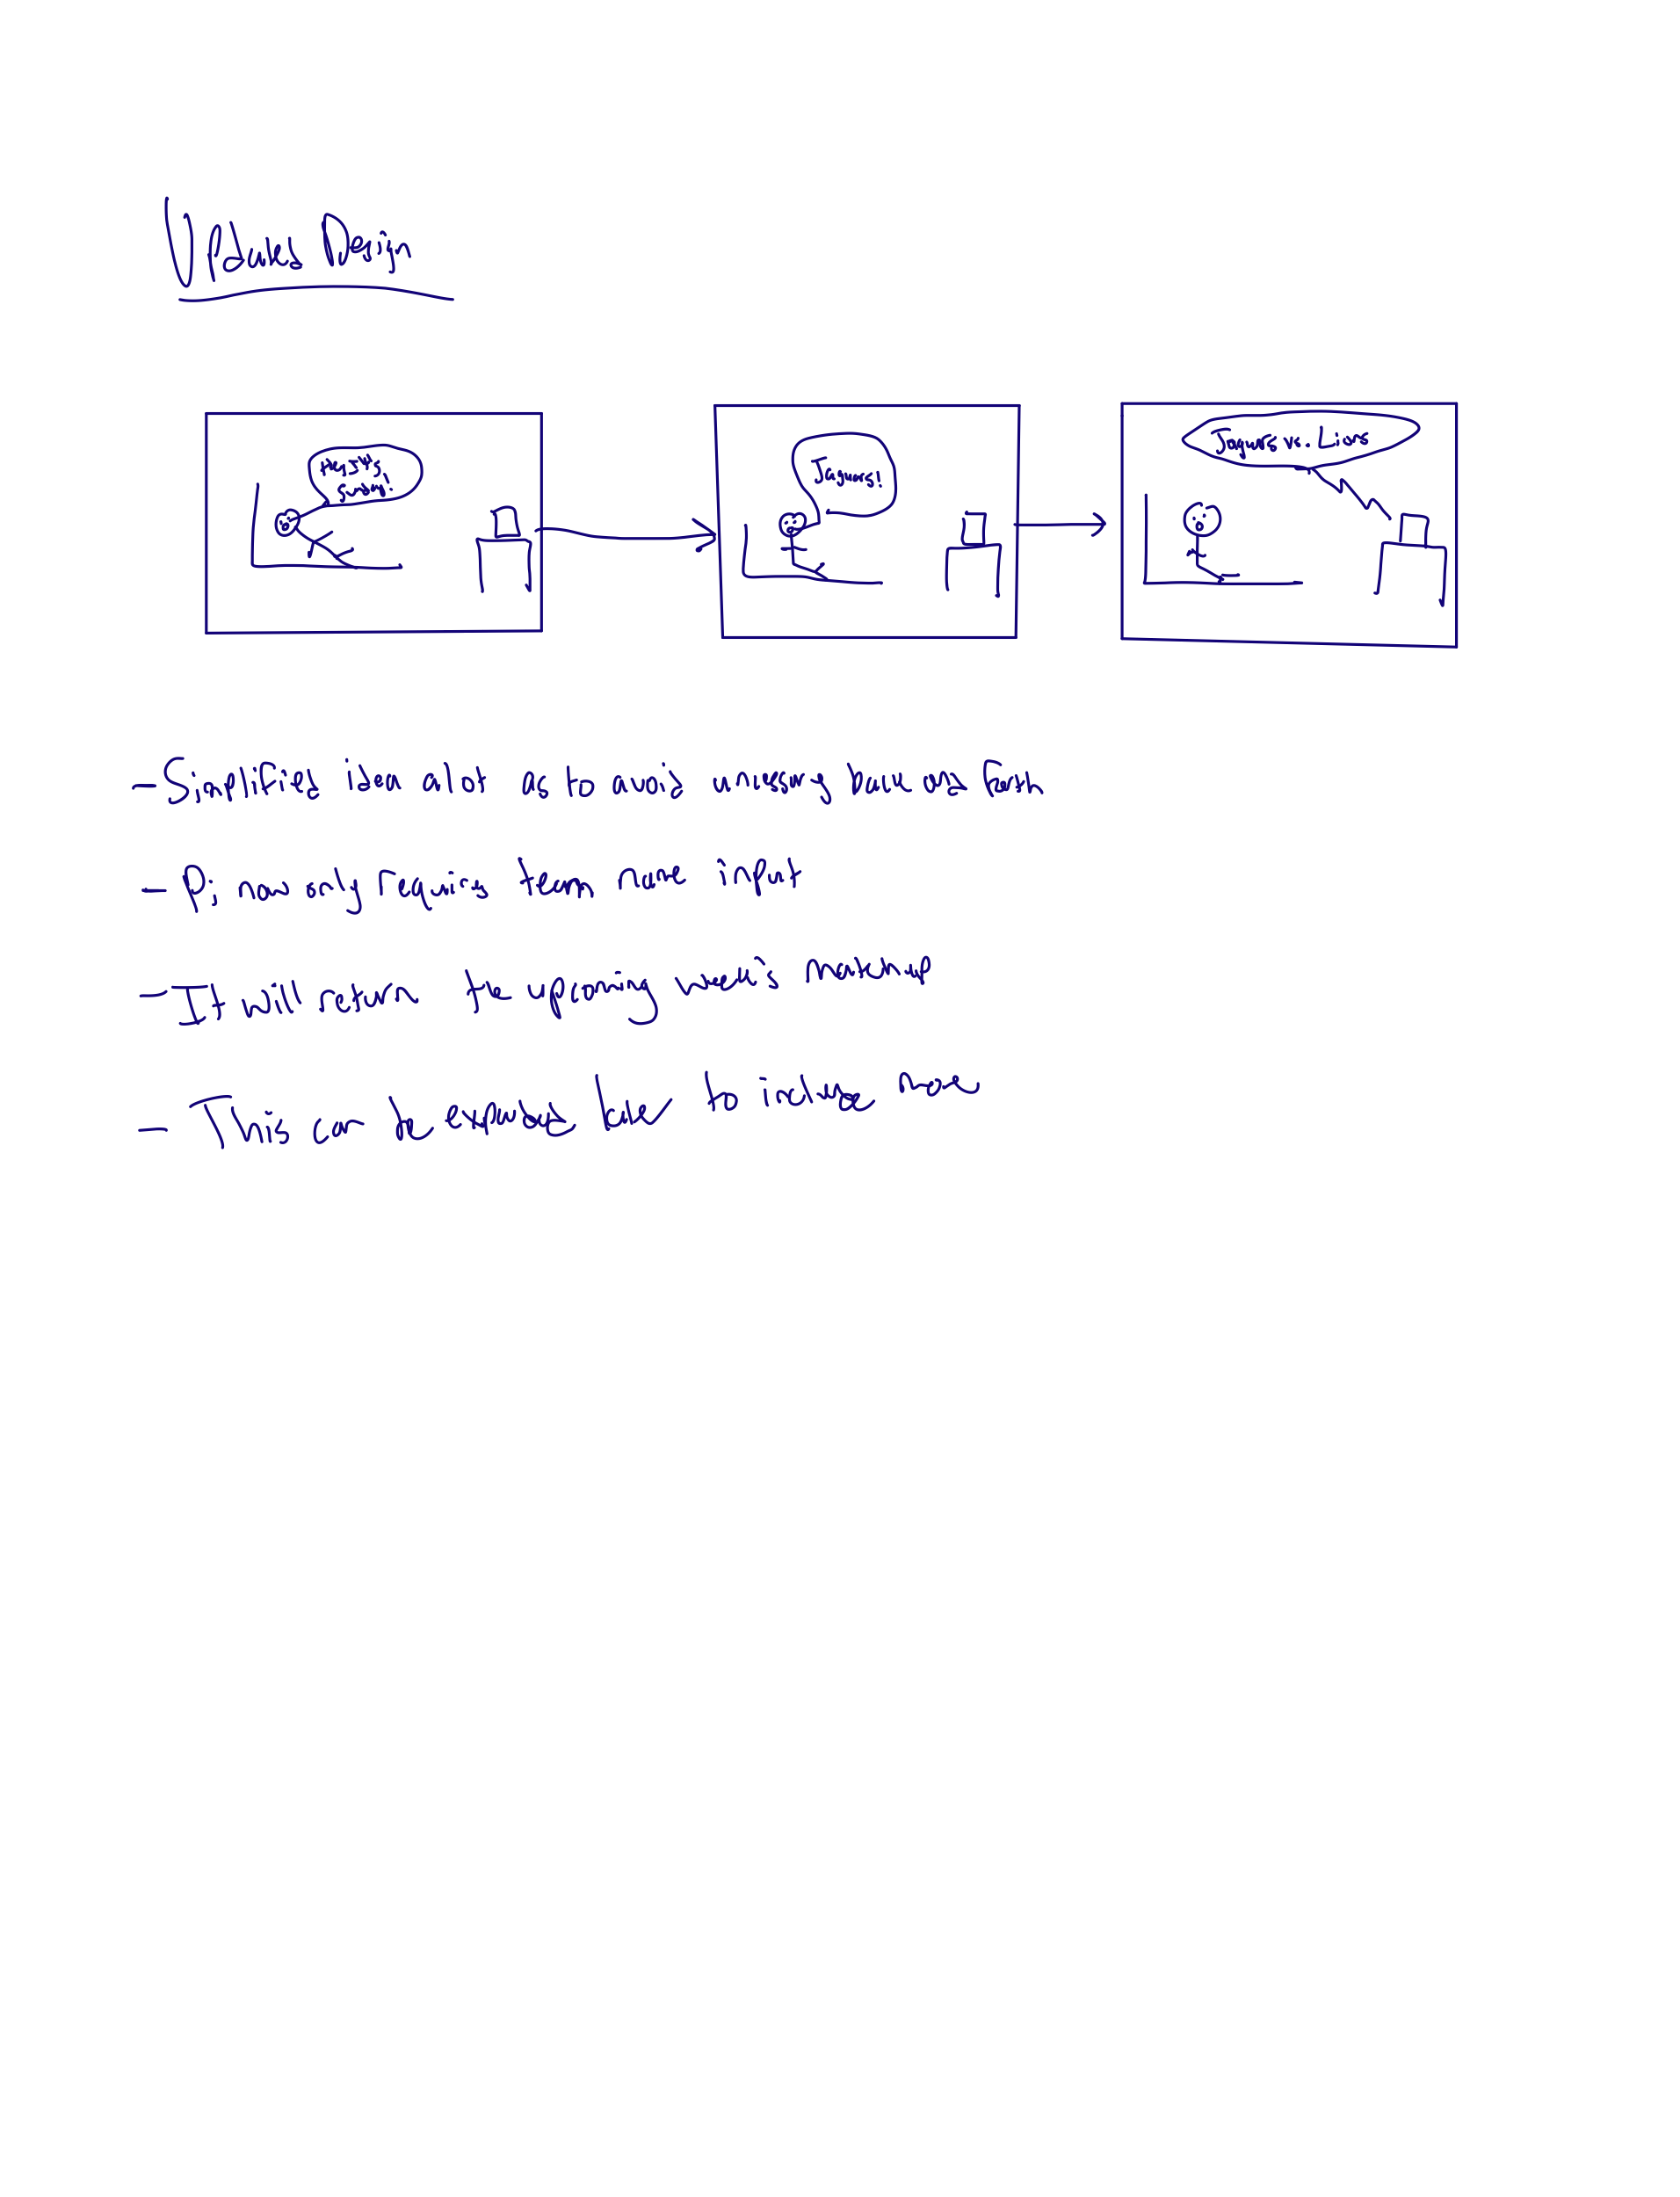 Updated Design
Hey It's
Sunday!
Jaguars!
Jaguars vs. Lions
- Simplified idea alot as to avoid unnecessary back and forth
- Pi now only requires team name input
- It will return the upcoming week's matchup
- This can be expanded later to include more